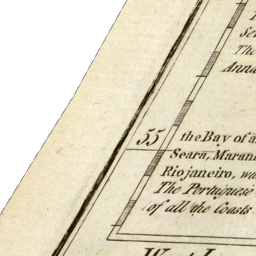 The
Anna
55
the Bay of a
Seara, Maran
Riojaneiro, wa
The Portuguese
of all the Coasts